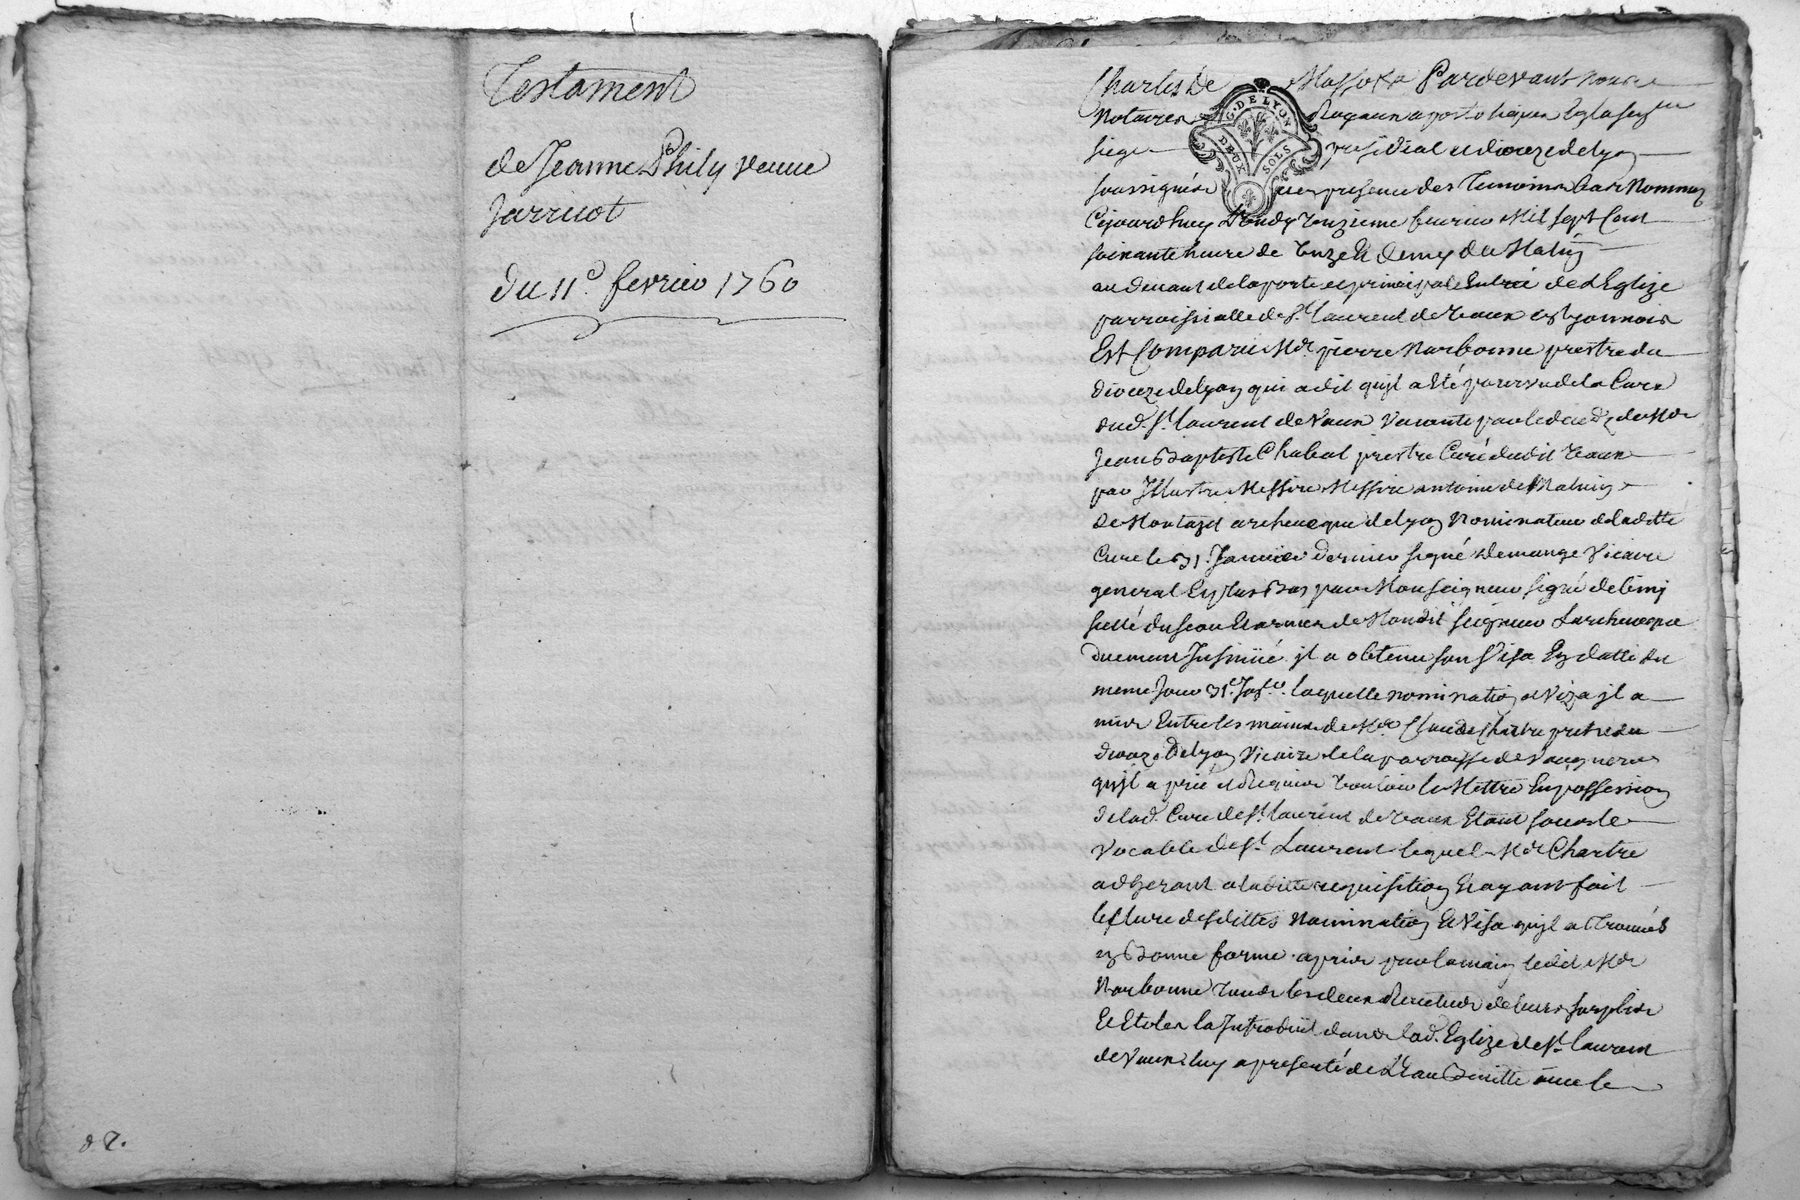 Testament
de Jeanne Phily veuve
Jarricot
du 11e. fevrier 1760
87.
Charles De Masso Pardevant nous
Notaires Royaux apostoliques
G. DE LYON
DEUX SOLS
siege presidial et dioceze de Lyon
soussignés et en presence des temoins bas Nommes
Cejourdhuy Lundy onzieme fevrier Mil sept Cent
soixante heure de onze et demy du Matin
au devant de la porte et principale Entrée de L'Eglize
parroissialle de St. Laurent de Vaux en Lyonnois
Est Comparu Mre pierre Narbonne prestre du
dioceze de Lyon qui a dit quil a Eté pourvu de la Cure
dud. St. Laurent de Vaux Vacante par le deceds de Mre
Jean Baptiste Chabeal prestre Curé dudit Vaux
par Illustre Messire Messire antoine de Malvin
de Montazet archeveque de Lyon Nominateur de la ditte
Cure le 31. Janvier dernier signé Demange Vicaire
general En plus Bas par Monseigneur signé de
scellé du sceau Et armes de Mondit seigneur Larcheveque
duement Insinué il a obtenu son Visa En datte du
meme Jour 31e. laquelle nomination et Viza il a
mis Entre les mains de Mre Claude Chartre pretre du
dioceze de Lyon Vicaire de la parroisse de Vaugneray
quil a prié et Requis Vouloir le Mettre En possession
de lad. Cure de St. laurent de Vaux Etant sous le
Vocable de St. Laurent lequel Mre Chartre
adherant a la ditte requisition Et ayant fait
lecture desdittes Nomination Et Visa quil a Trouvés
en Bonne forme a pris par la main ledit Mre
Narbonne tous les deux Revetus de leurs surplis
Et Etoles la Introduit dans lad. Eglize de St. laurent
de Vaux luy a presenté de L'Eau Benitte avec le